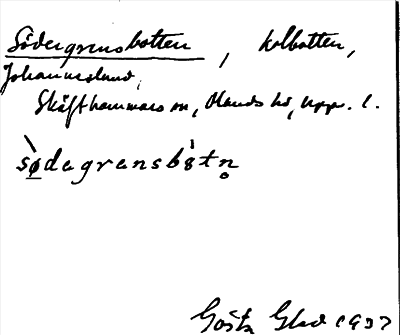 Södergrensbotten, kolbotten,
Johanneslund,
Skäfthammars sn, Olands hd, Upps. l.
sø̀dagrensbòtn̥
Gösta Glad 1937